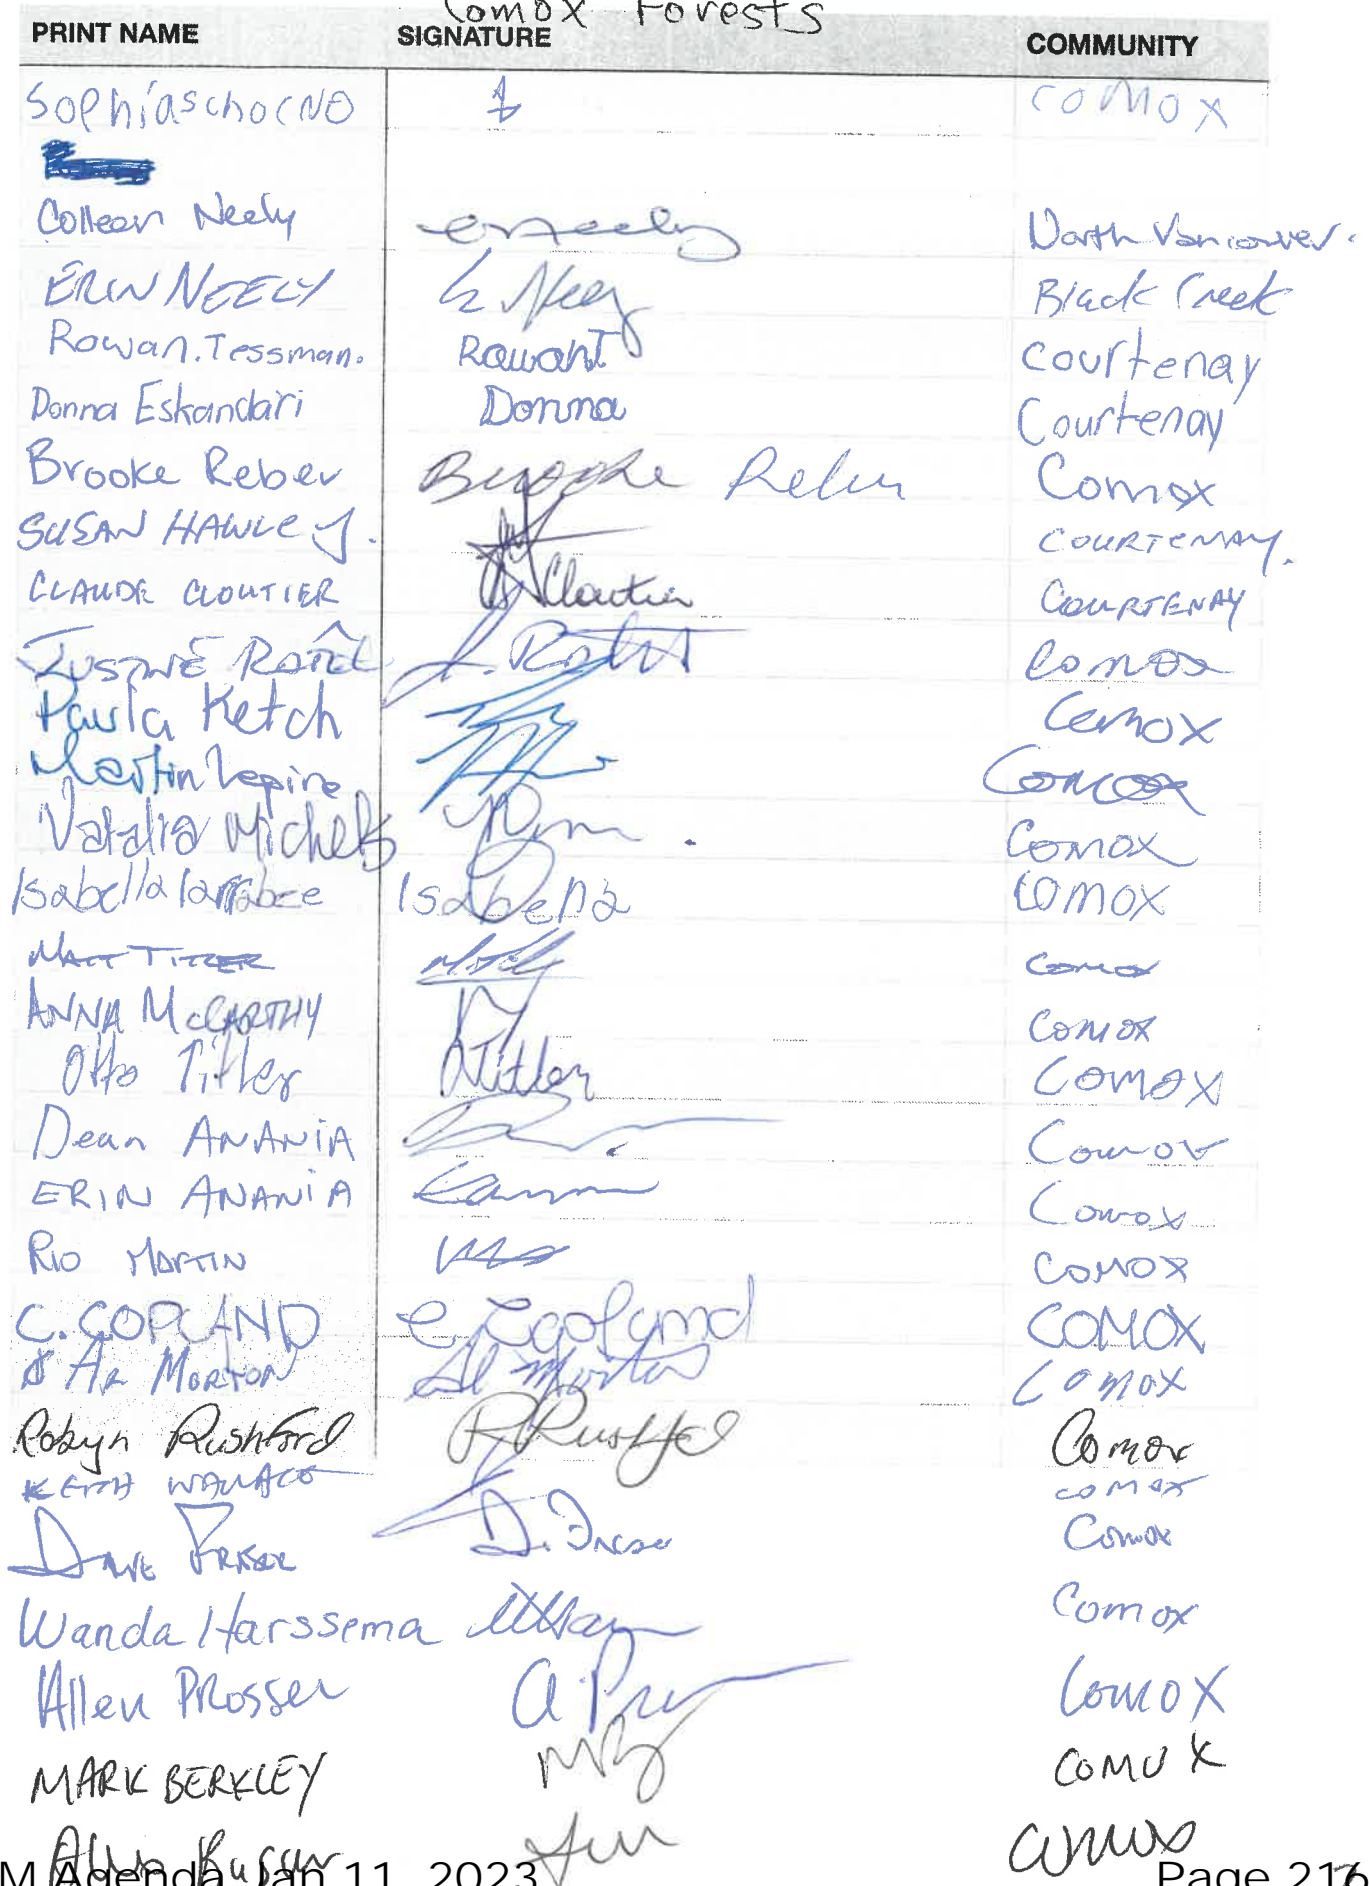 Comox Forests
PRINT NAME SIGNATURE COMMUNITY
Sophiaschocno comox
Colleen Neely North Vancouver.
ERIN NEELY E Neely Black Creek
Rowan.Tessman. RowanT Courtenay
Donna Eskandari Donna Courtenay
Brooke Reber Brooke Reber Comox
SUSAN HAWLEY. COURTENAY.
CLAUDE CLOUTIER Cloutier COURTENAY
JUSTINE Comox
Paula Ketch Comox
Martin Lepine Comox
Natalia Michels Comox
Isabella Isabella Comox
MATT TITLER Comox
ANNA McCARTHY COMOX
Otto Titler Titler COMOX
Dean ANANiA Comox
ERIN ANANiA Comox
RIO MARTIN COMOX
C. COPLAND C Copland COMOX
AL MORTON Al Morton Comox
Robyn Rushford R Rushford Comox
KEITH WALLACE COMOX
DAVE FRASER D. Fraser Comox
Wanda Harssema Comox
Allen PRosser Comox
MARK BERKLEY MB COMOX
Comox
M Agenda Jan 11, 2023 Page 216